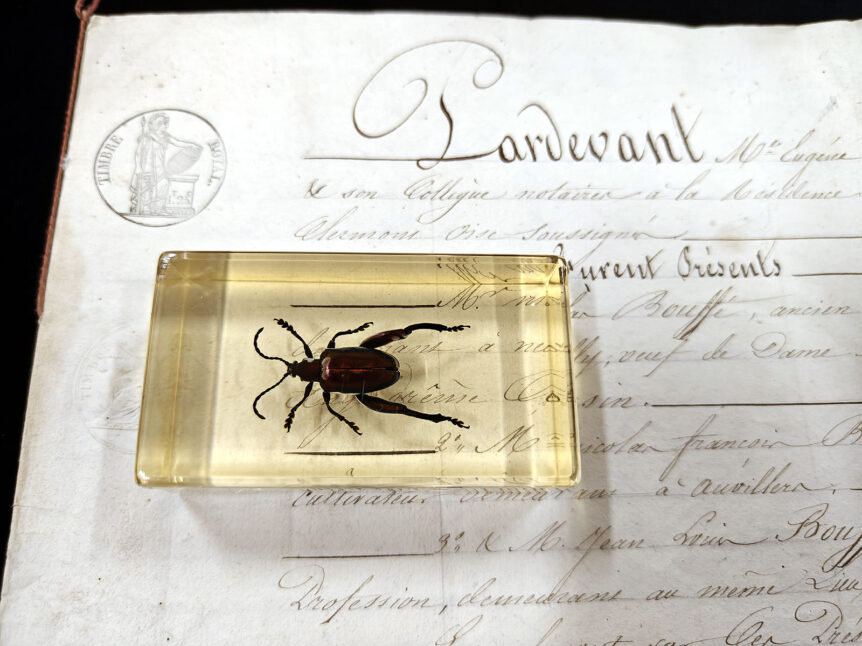 TIMBRE ROYAL
Pardevant Me Eugène
& son Collègue notaires à la Résidence
Clermont Oise soussignés
furent Présents
Mr Bouffé, ancien
à neuilly, veuf de Dame
2° M nicolas françois B
cultivateur demeurant à auvillers.
3° & M. Jean Louis Bouff
Profession, demeurant au même Lieu